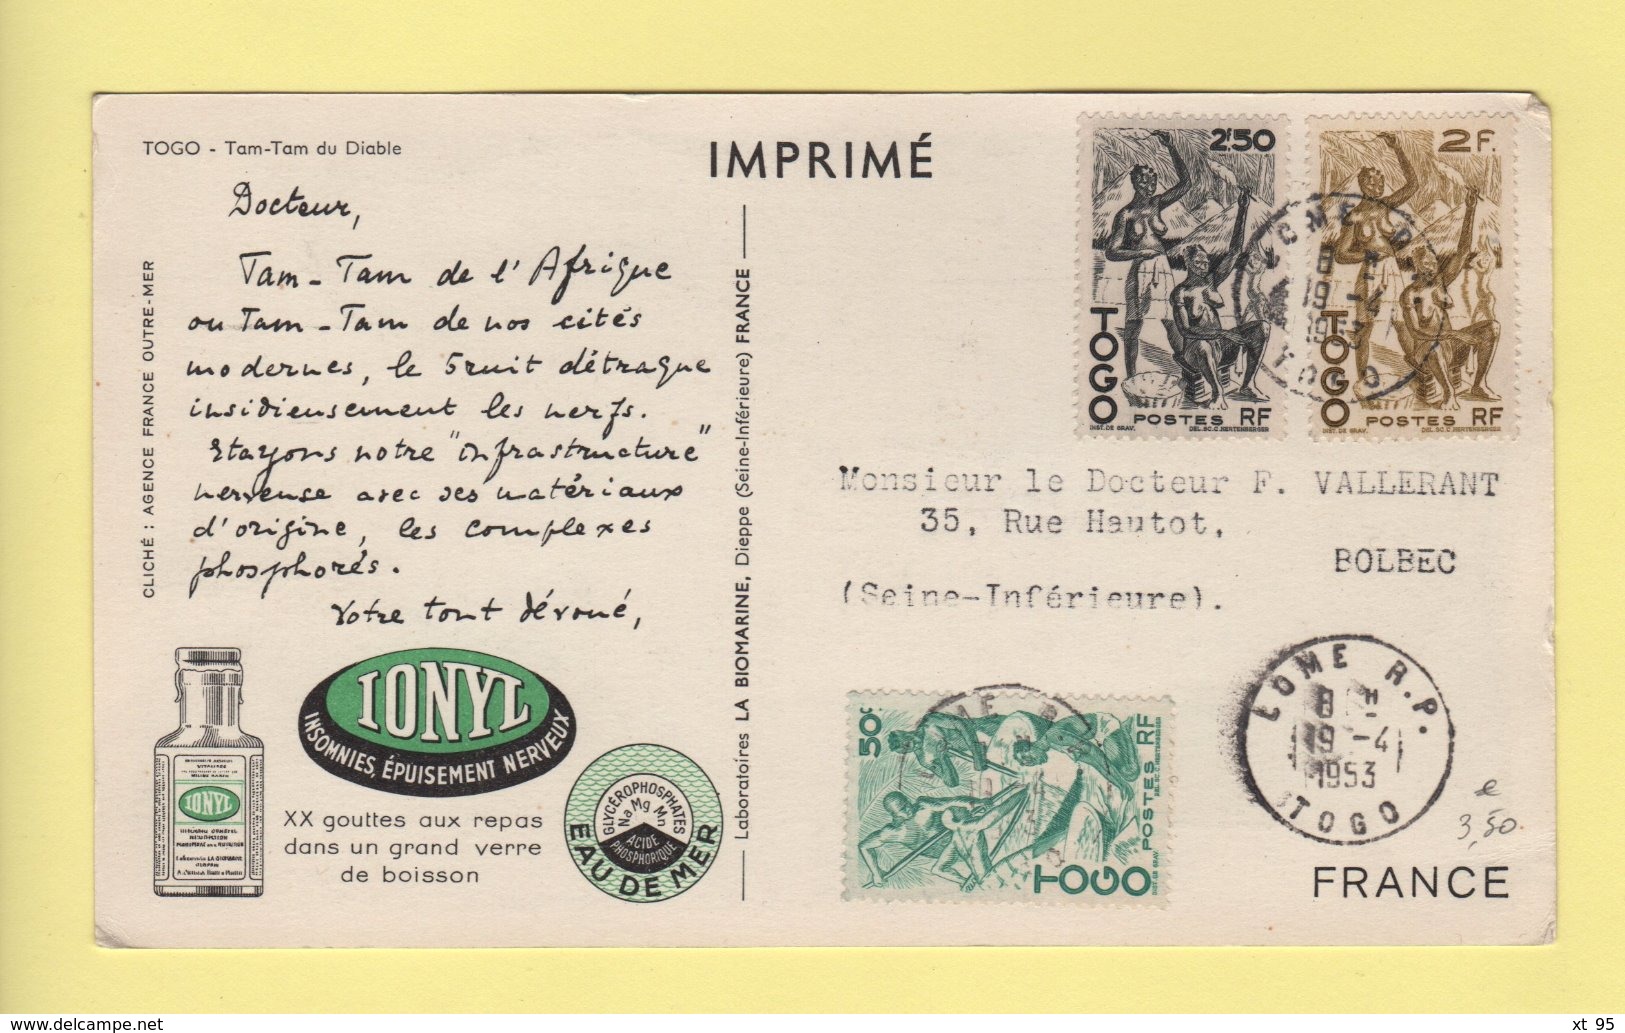 TOGO - Tam-Tam du Diable
IMPRIMÉ
Docteur,
Tam-Tam de l'Afrique
ou Tam-Tam de nos cités
modernes, le bruit détraque
insidieusement les nerfs.
Etayons notre "infrastructure"
nerveuse avec ses matériaux
d'origine, les complexes
phosphorés.
Votre tout dévoué,
CLICHÉ : AGENCE FRANCE OUTRE-MER
IONYL
INSOMNIES, ÉPUISEMENT NERVEUX
XX gouttes aux repas
dans un grand verre
de boisson
IONYL
GLYCÉROPHOSPHATES
Na Mg Mn
ACIDE
PHOSPHORIQUE
EAU DE MER
Laboratoires LA BIOMARINE, Dieppe (Seine-Inférieure) FRANCE
2F50
TOGO
POSTES RF
INST. DE GRAV. DEL. SC. C. HERTENBERGER
2F.
TOGO
POSTES RF
INST. DE GRAV. DEL. SC. C. HERTENBERGER
LOME R.P.
8 H
19 - 4
1953
TOGO
Monsieur le Docteur F. VALLERANT
35, Rue Hautot,
BOLBEC
(Seine-Inférieure).
50c
TOGO
POSTES RF
LOME R.P.
8 H
19 - 4
1953
TOGO
e
3,50
FRANCE
www.delcampe.net
xt 95